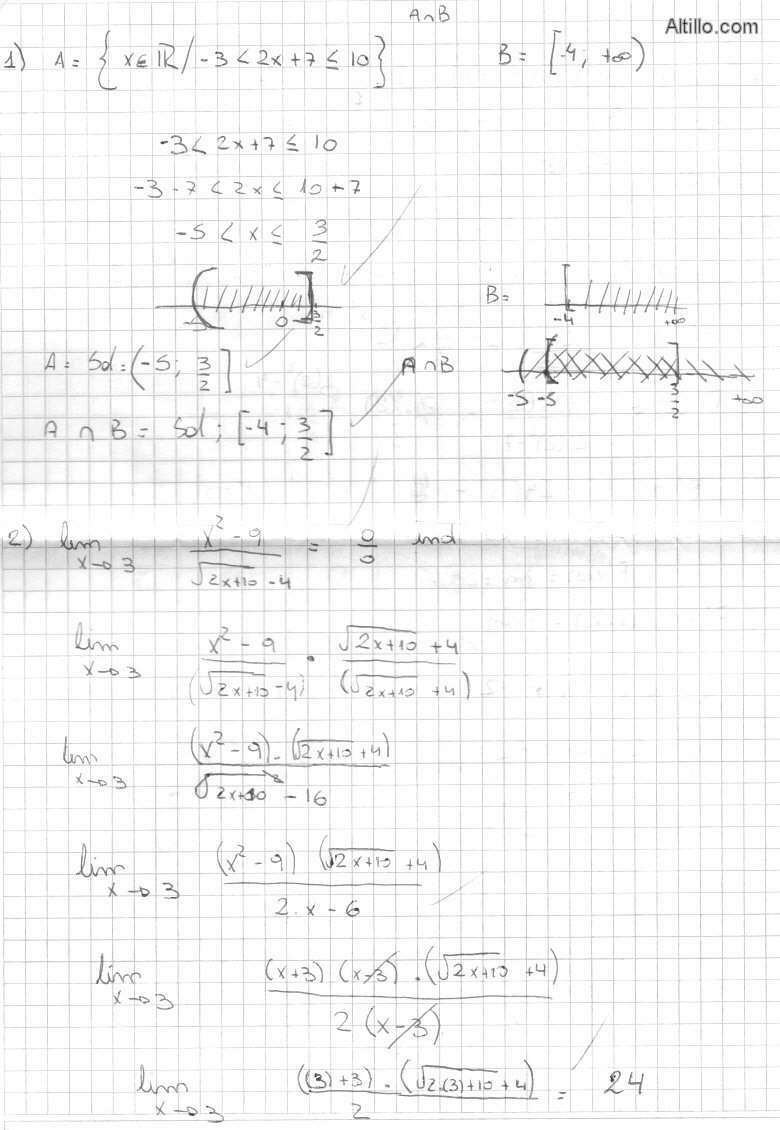 A∩B
Altillo.com
1) A = { x ∈ ℝ / -3 < 2x+7 ≤ 10 } B = [-4; +∞)
-3 < 2x+7 ≤ 10
-3 -7 < 2x ≤ 10 -7
-5 < x ≤ 3/2
-5 0 3/2
B= -4 +∞
A = Sol = (-5; 3/2] A∩B
-5 -5 3/2 +∞
A ∩ B = Sol; [-4; 3/2]
2) lim x→3 (x² - 9)/(√(2x+10) - 4) = 0/0 ind
lim x→3 (x² - 9)/(√(2x+10) - 4) · (√(2x+10) + 4)/(√(2x+10) + 4)
lim x→3 ((x² - 9) · (√(2x+10) + 4))/(√(2x+10)² - 16)
lim x→3 ((x² - 9) (√(2x+10) + 4))/(2.x - 6)
lim x→3 ((x+3) (x-3) · (√(2x+10) + 4))/(2 (x-3))
lim x→3 (((3)+3) · (√(2.(3)+10) + 4))/2 = 24